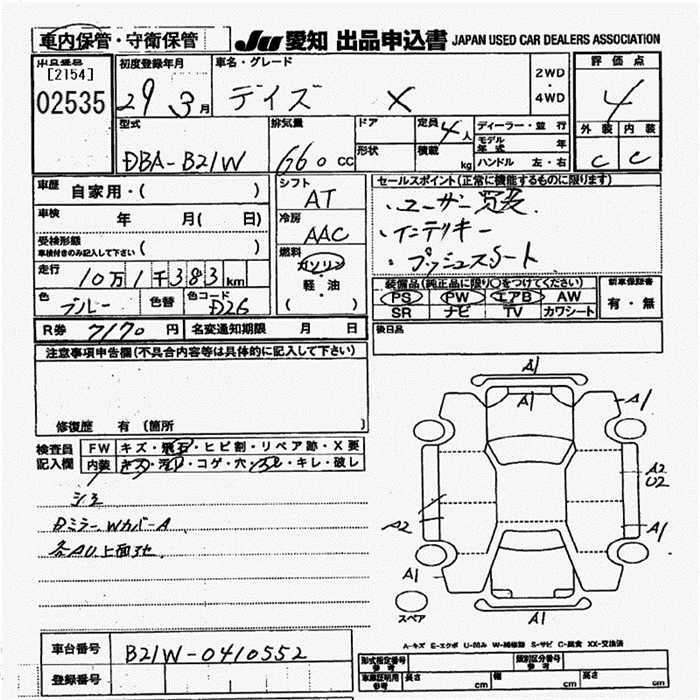 車内保管・守衛保管
JU 愛知 出品申込書 JAPAN USED CAR DEALERS ASSOCIATION
出品番号 初度登録年月 車名・グレード 2WD・4WD 評価点
[2154]
02535 29 3月 デイズ X 4
型式 排気量 ドア 定員 4人 ディーラー・並行 外装 内装
DBA-B21W 660cc 形状 積載 kg モデル年式 年 C C
ハンドル 左・右
車歴 自家用・( ) シフト AT セールスポイント(正常に機能するものに限ります)
車検 年 月( 日) 冷房 AAC ・ユーザー買取
受検形態 ( ) ・インテリキー
車検付きのみ記入して下さい 燃料 ガソリン・軽・油 ( ) ・プッシュスタート
走行 10万1千383km
色 ブルー 色替 色コード D26
装備品(純正品に限り○をつけてください) 新車保証書
PS PW エアB AW 有・無
SR ナビ TV カワシート
R券 7170円 名変通知期限 月 日 後日品
注意事項申告欄(不具合内容等は具体的に記入して下さい)
修復歴 有 (箇所
検査員記入欄 FW キズ・飛石・ヒビ割・リペア跡・X要
内装 キズ・汚れ・コゲ・穴・スレ・キレ・破し
シミ
Dミラー.WカバーA
各AU上面
A1
A1
A1
A2
U2
A2
A1
A1
A1
スペア
A-キズ E-エクボ U-凹み W-補修跡 S-サビ C-腐食 XX-交換済
車台番号 B21W-0410552
登録番号
形式指定番号 参考 類別区分番号 参考
車庫証明用 参考 長さ cm 幅 cm 高さ cm